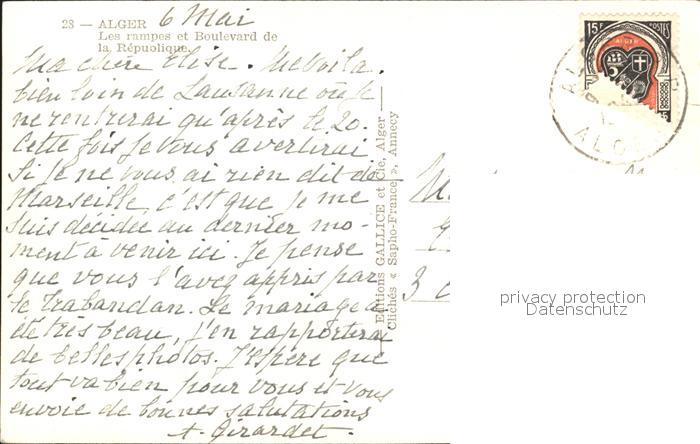 28 — ALGER 6 Mai
Les rampes et Boulevard de
la République.
Ma chère Elise. Me voilà
bien loin de Lausanne où je
ne rentrerai qu'après le 20.
Cette fois je vous avertirai
Si je ne vous ai rien dit de
Marseille, c'est que je me
suis décidée au dernier mo-
ment à venir ici. Je pense
que vous l'avez appris par
le Trabandan. Le mariage a
été très beau, j'en rapporterai
de belles photos. J'espère que
tout va bien pour vous et vous
envoie de bonnes salutations
A. Girardet.
Editions GALLICE et Cie, Alger
Clichés « Sapho-France », Annecy
15F POSTES
ALGER
ALGER
M
3
privacy protection
Datenschutz